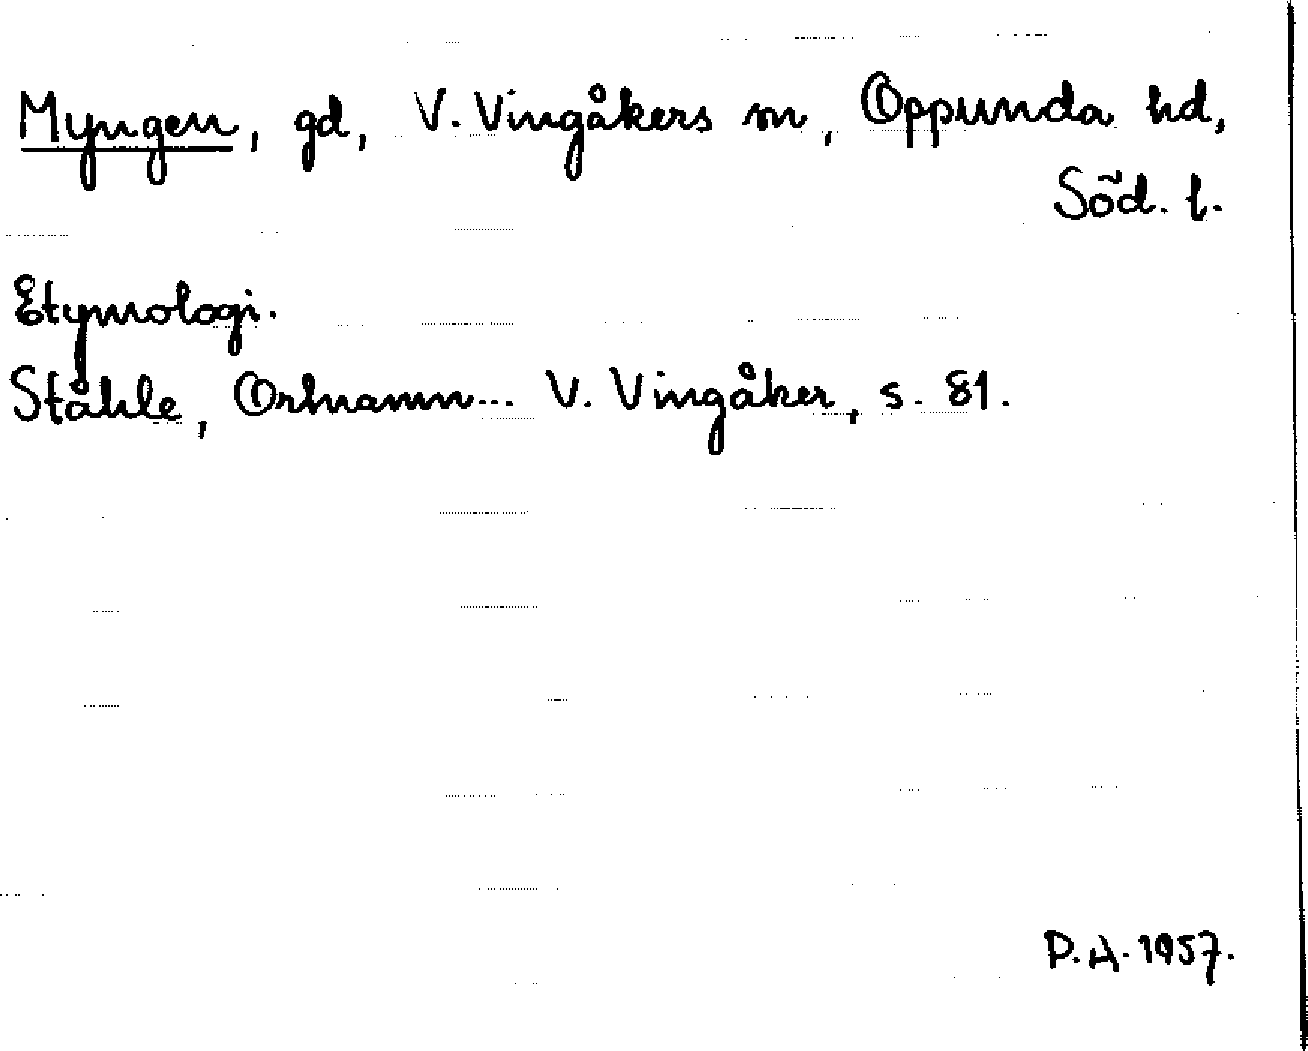 Myngen, gd, V. Vingåkers sn, Oppunda hd,
Söd. l.
Etymologi.
Ståhle, Ortnamn... V. Vingåker, s. 81.
P.A. 1957.